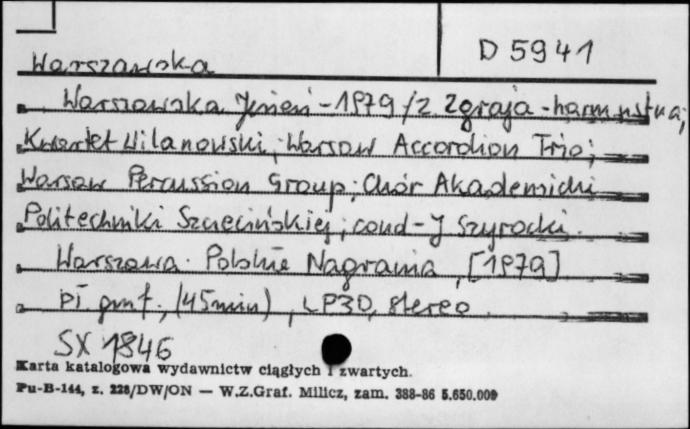 D 5941
Warszawska
Warszawska Jesień - 1979 / Z Zgraja - harm ustna;
Kwartet Wilanowski; Warsaw Accordion Trio;
Warsaw Percussion Group; Chór Akademicki
Politechniki Szczecińskiej; cond - J Szyrocki.
Warszawa. Polskie Nagrania, [1979]
pł gmf., (45min), LP30, stereo
SX 1846
Karta katalogowa wydawnictw ciągłych i zwartych.
Pu-B-144, z. 228/DW/ON — W.Z.Graf. Milicz, zam. 388-86 5.650.000